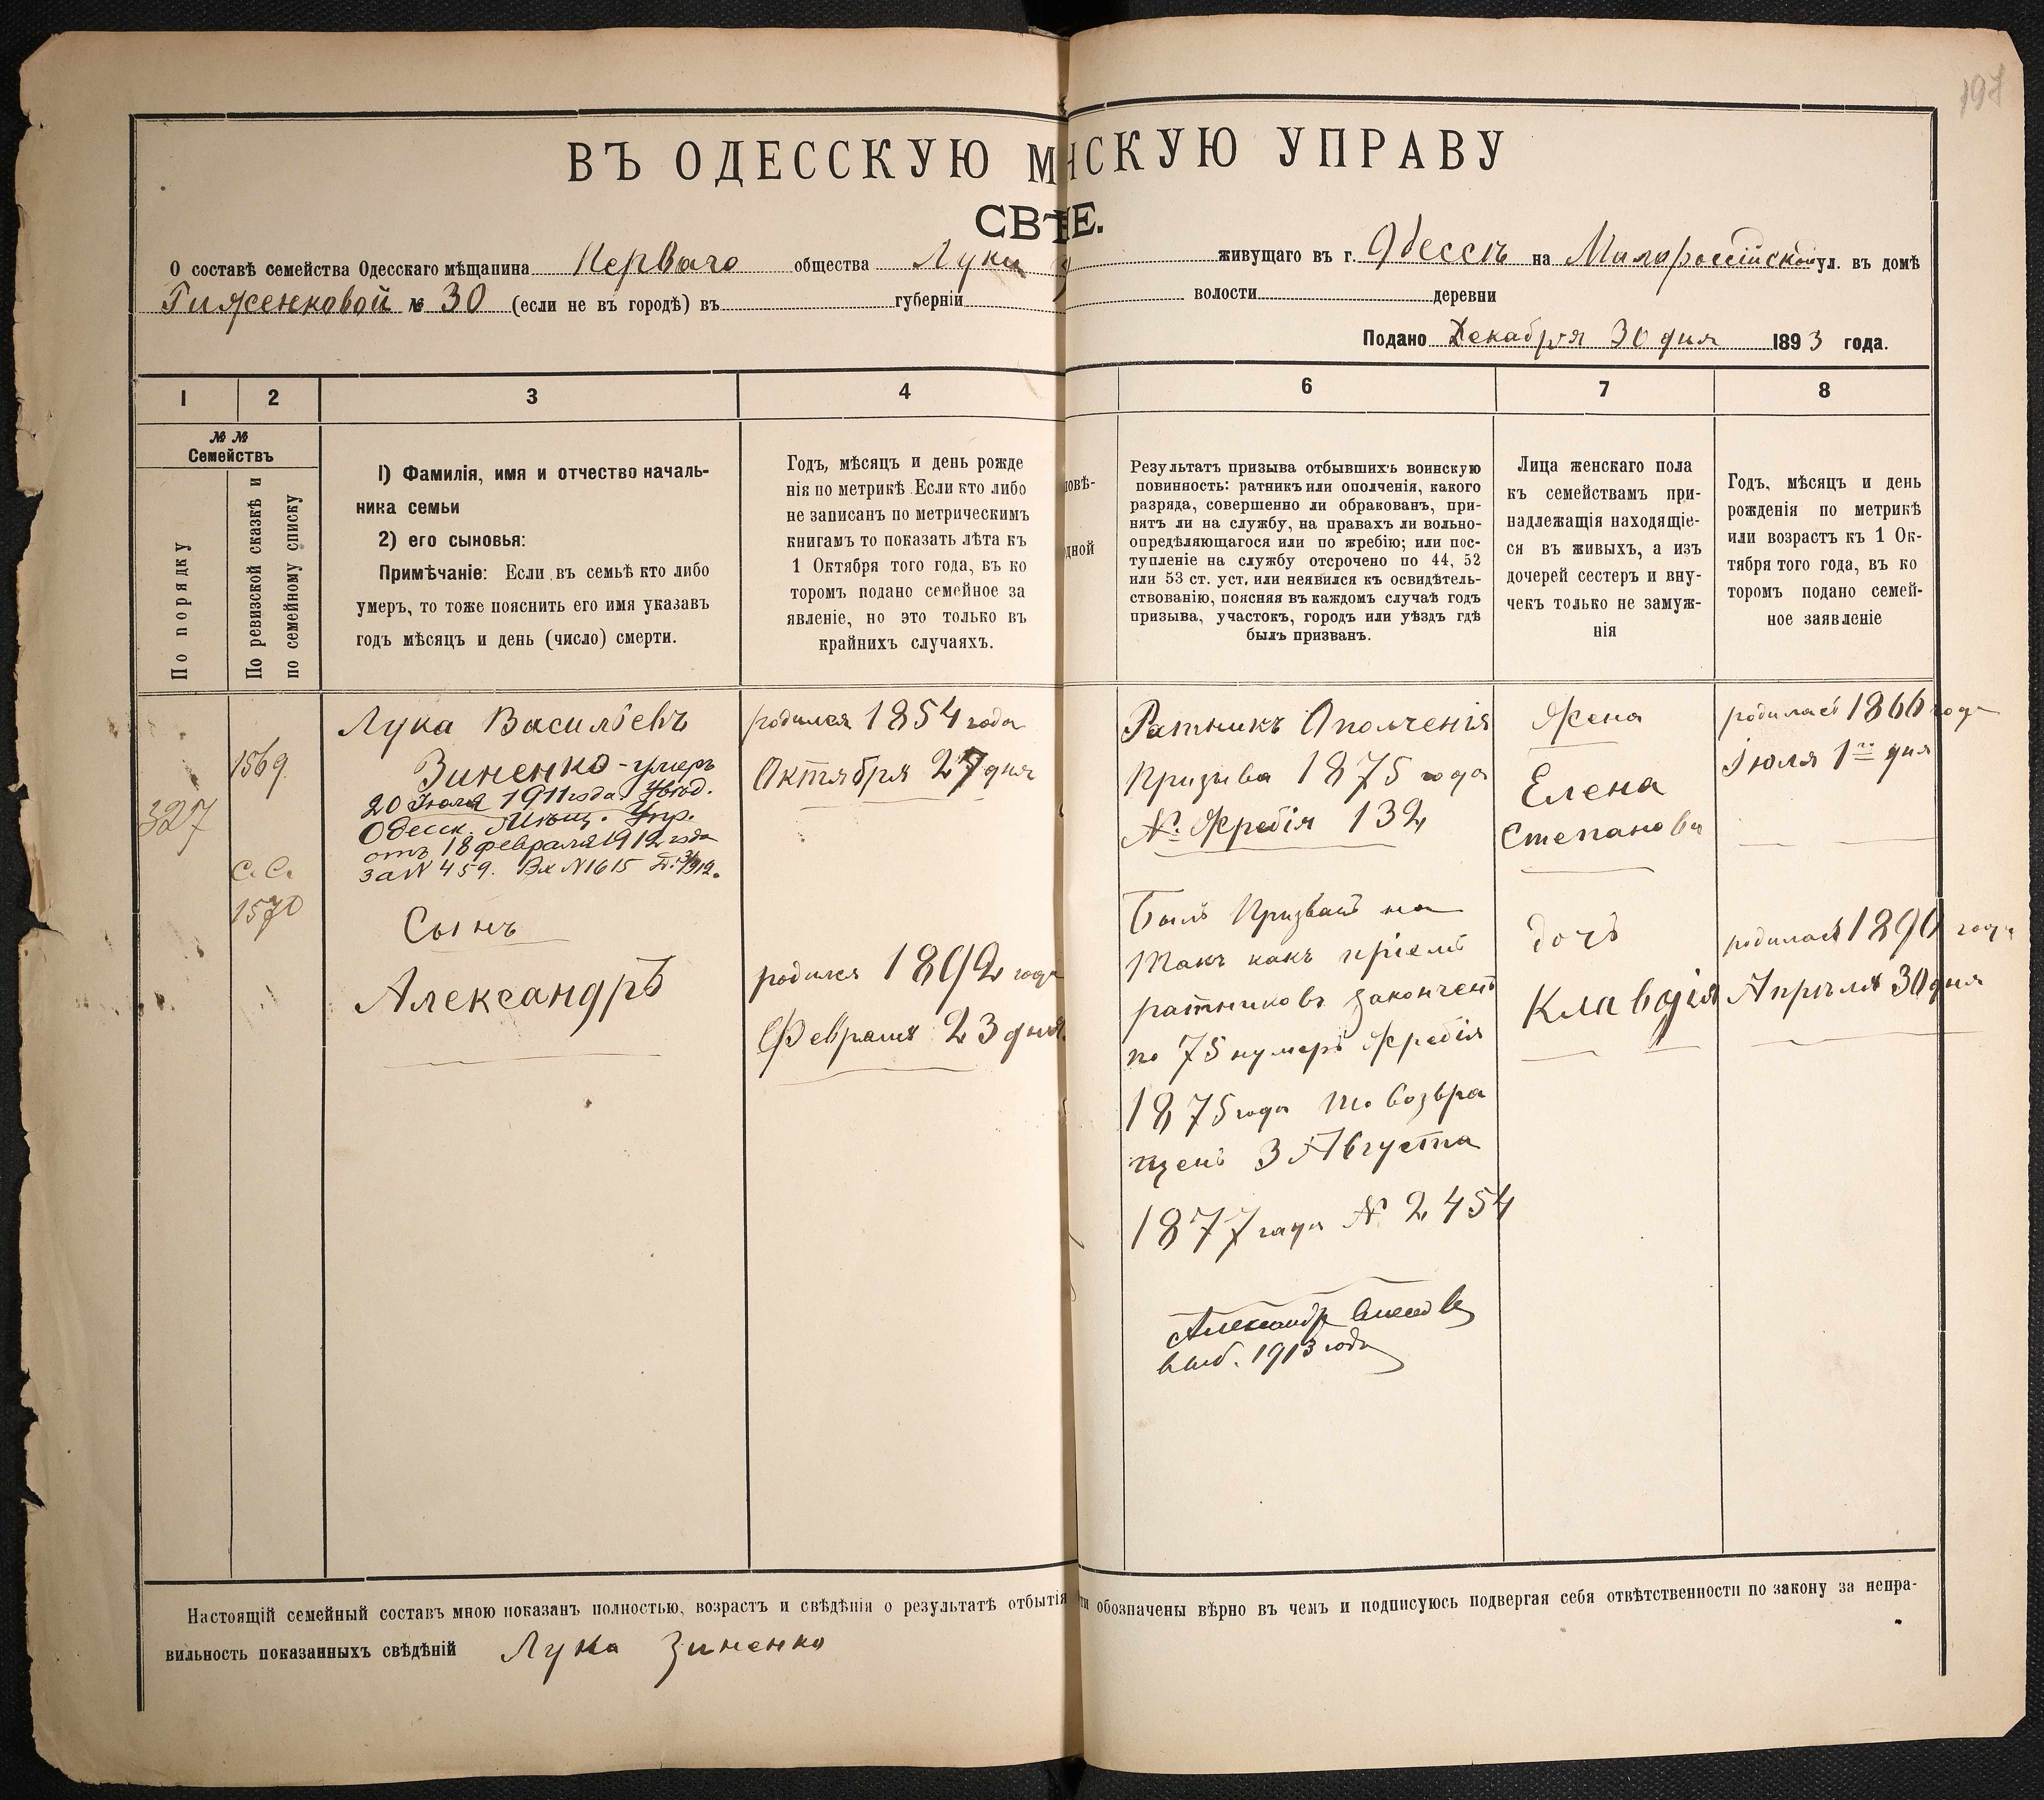 197
ВЪ ОДЕССКУЮ М НСКУЮ УПРАВУ
СВѢ Е.
О составѣ семейства Одесскаго мѣщанина Перваго общества Луки живущаго въ г. Одессѣ на Малороссійской ул. въ домѣ
Гиженковой № 30 (если не въ городѣ) въ губерніи волости деревни
Подано Декабря 30 дня 1893 года.
1 2 3 4 6 7 8
№ №
Семействъ
По порядку
По ревизской сказкѣ и
по семейному списку
1) Фамилія, имя и отчество началь-
ника семьи
2) его сыновья:
Примѣчаніе: Если въ семьѣ кто либо
умеръ, то тоже пояснить его имя указавъ
годъ мѣсяцъ и день (число) смерти.
Годъ, мѣсяцъ и день рожде
нія по метрикѣ Если кто либо
не записанъ по метрическимъ
книгамъ то показать лѣта къ
1 Октября того года, въ ко
торомъ подано семейное за
явленіе, но это только въ
крайнихъ случаяхъ.
повѣ-
дной
Результатъ призыва отбывшихъ воинскую
повинность: ратникъ или ополченія, какого
разряда, совершенно ли обракованъ, при-
нятъ ли на службу, на правахъ ли вольно-
опредѣляющагося или по жребію; или пос-
тупленіе на службу отсрочено по 44, 52
или 53 ст. уст. или неявился къ освидѣтель-
ствованію, поясняя въ каждомъ случаѣ годъ
призыва, участокъ, городъ или уѣздъ гдѣ
былъ призванъ.
Лица женскаго пола
къ семействамъ при-
надлежащія находящіе-
ся въ живыхъ, а изъ
дочерей сестеръ и вну-
чекъ только не замуж-
нія
Годъ, мѣсяцъ и день
рожденія по метрикѣ
или возрастъ къ 1 Ок-
тября того года, въ ко
торомъ подано семей-
ное заявленіе
327
1569.
С. С.
1570
Лука Васильевъ
Зиненко - умеръ
20 Іюля 1911 года. Увѣд.
Одесск. Мѣщ. Упр.
отъ 18 февраля 1912 года
за N 459. Вх N 1615
Сынъ
Александръ
родился 1854 года
Октября 27 дня
родился 1892 года
Февраля 23 дня.
Ратникъ Ополченія
Призыва 1875 года
№ Жребія 132
Былъ Призванъ но
такъ какъ пріемъ
ратниковъ законченъ
по 75 нумеръ Жребія
1875 года то возвра
щенъ 3 Августа
1877 года № 2454
Александр
1913 года
Жена
Елена
Степанова
дочь
Клавдія
родилась 1866 года
Іюля 1го дня
родилась 1890 года
Апрѣля 30 дня
Настоящій семейный составъ мною показанъ полностью, возрастъ и свѣдѣнія о результатѣ отбытія ти обозначены вѣрно въ чемъ и подписуюсь подвергая себя отвѣтственности по закону за непра-
вильность показанныхъ свѣдѣній Лука Зиненко